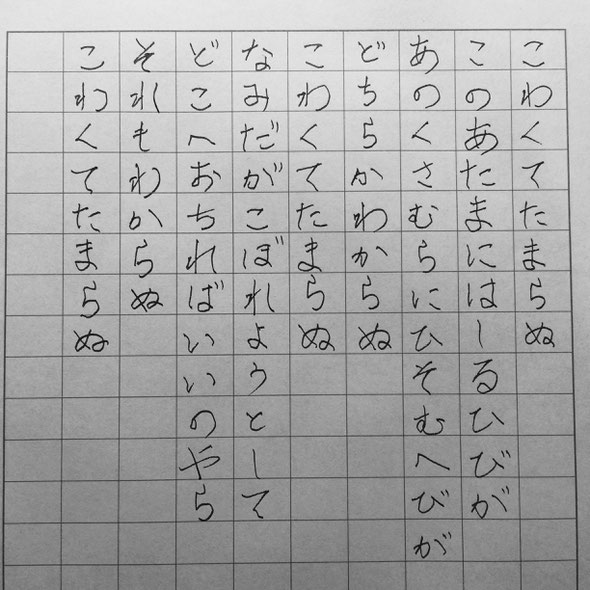 こわくてたまらぬ
このあたまにはしるひびが
あのくさむらにひそむへびが
どちらかわからぬ
こわくてたまらぬ
なみだがこぼれようとして
どこへおちればいいのやら
それもわからぬ
こわくてたまらぬ